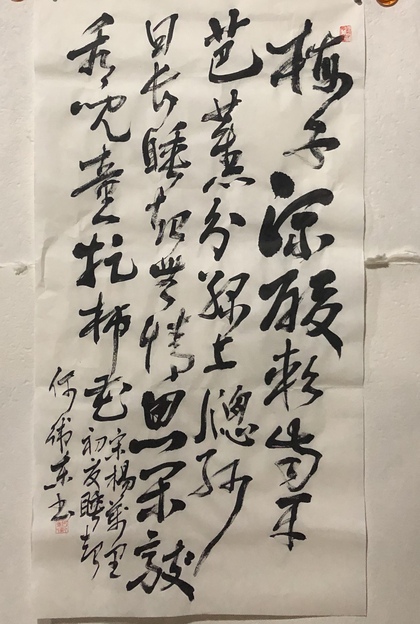 梅子酸軟齒牙
芭蕉分綠上窗紗
日長睡起無情思閑
看兒童捉柳花
宋楊萬里
初夏睡起
何衛東书